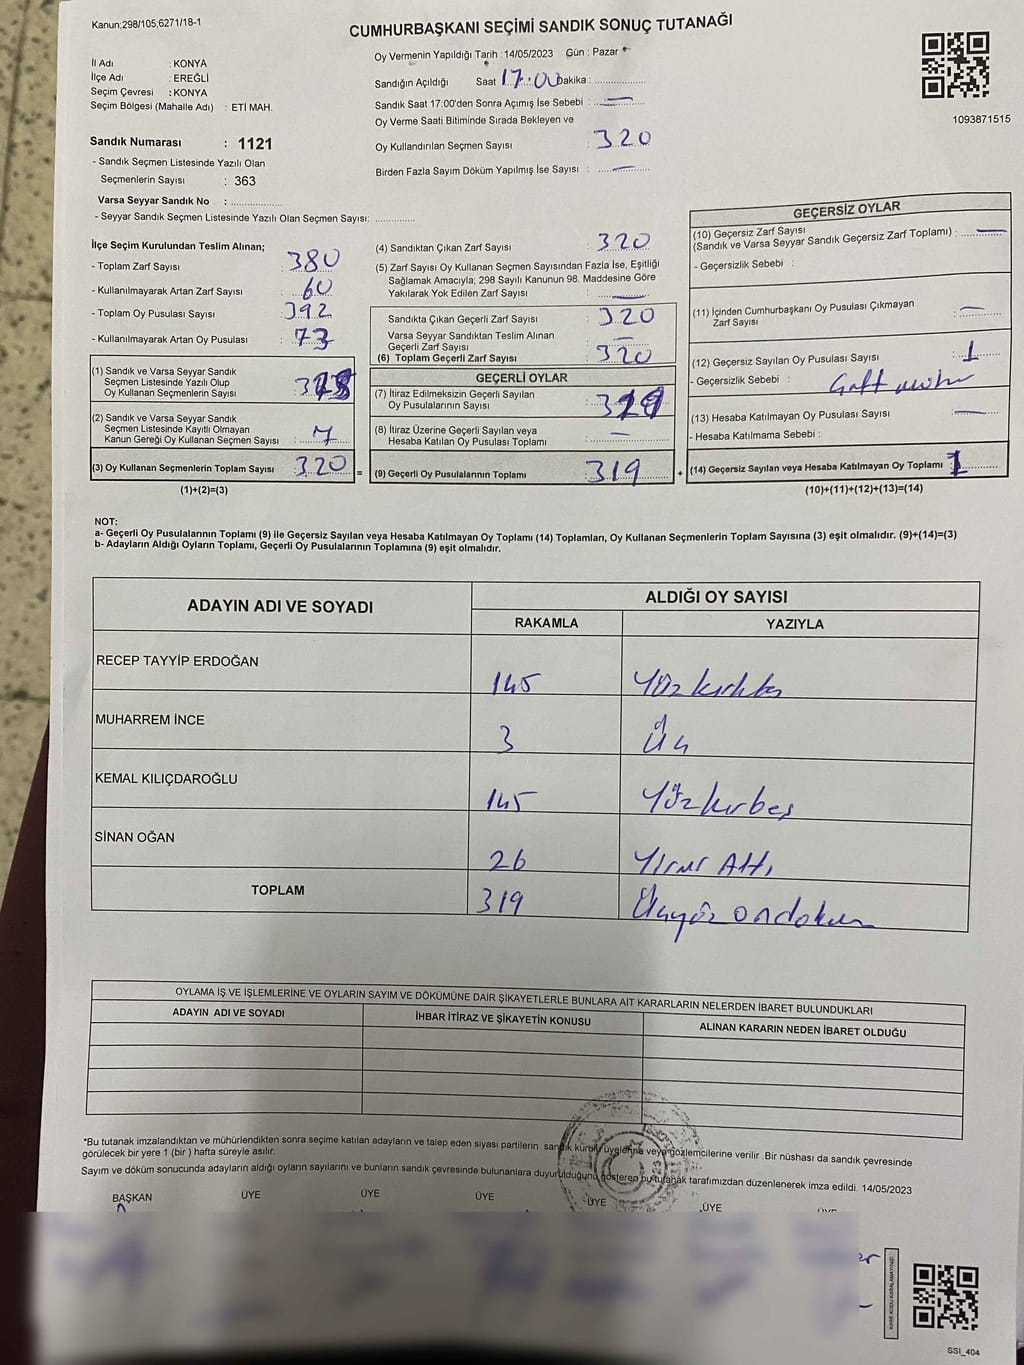 Kanun;298/105,6271/18-1
CUMHURBAŞKANI SEÇİMİ SANDIK SONUÇ TUTANAĞI
İl Adı : KONYA
İlçe Adı : EREĞLİ
Seçim Çevresi : KONYA
Seçim Bölgesi (Mahalle Adı) : ETİ MAH.
Oy Vermenin Yapıldığı Tarih : 14/05/2023 Gün : Pazar
Sandığın Açıldığı Saat 17.00 Dakika :
Sandık Saat 17:00'den Sonra Açımış İse Sebebi : —
Oy Verme Saati Bitiminde Sırada Bekleyen ve
Oy Kullandırılan Seçmen Sayısı : 320
Birden Fazla Sayım Döküm Yapılmış İse Sayısı : —
1093871515
Sandık Numarası : 1121
- Sandık Seçmen Listesinde Yazılı Olan
Seçmenlerin Sayısı : 363
Varsa Seyyar Sandık No :
- Seyyar Sandık Seçmen Listesinde Yazılı Olan Seçmen Sayısı:
İlçe Seçim Kurulundan Teslim Alınan;
- Toplam Zarf Sayısı : 380
- Kullanılmayarak Artan Zarf Sayısı : 60
- Toplam Oy Pusulası Sayısı : 392
- Kullanılmayarak Artan Oy Pusulası : 73
(1) Sandık ve Varsa Seyyar Sandık
Seçmen Listesinde Yazılı Olup
Oy Kullanan Seçmenlerin Sayısı :
(2) Sandık ve Varsa Seyyar Sandık
Seçmen Listesinde Kayıtlı Olmayan
Kanun Gereği Oy Kullanan Seçmen Sayısı : 7
(3) Oy Kullanan Seçmenlerin Toplam Sayısı : 320 =
(1)+(2)=(3)
(4) Sandıktan Çıkan Zarf Sayısı : 320
(5) Zarf Sayısı Oy Kullanan Seçmen Sayısından Fazla İse, Eşitliği
Sağlamak Amacıyla; 298 Sayılı Kanunun 98. Maddesine Göre
Yakılarak Yok Edilen Zarf Sayısı : —
Sandıkta Çıkan Geçerli Zarf Sayısı : 320
Varsa Seyyar Sandıktan Teslim Alınan
Geçerli Zarf Sayısı : —
(6) Toplam Geçerli Zarf Sayısı : 320
GEÇERLİ OYLAR
(7) İtiraz Edilmeksizin Geçerli Sayılan
Oy Pusulalarının Sayısı : 319
(8) İtiraz Üzerine Geçerli Sayılan veya
Hesaba Katılan Oy Pusulası Toplamı : —
(9) Geçerli Oy Pusulalarının Toplamı : 319 +
GEÇERSİZ OYLAR
(10) Geçersiz Zarf Sayısı
(Sandık ve Varsa Seyyar Sandık Geçersiz Zarf Toplamı) : —
- Geçersizlik Sebebi :
(11) İçinden Cumhurbaşkanı Oy Pusulası Çıkmayan
Zarf Sayısı : —
(12) Geçersiz Sayılan Oy Pusulası Sayısı : 1
- Geçersizlik Sebebi :
(13) Hesaba Katılmayan Oy Pusulası Sayısı : —
- Hesaba Katılmama Sebebi :
(14) Geçersiz Sayılan veya Hesaba Katılmayan Oy Toplamı : 1
(10)+(11)+(12)+(13)=(14)
NOT:
a- Geçerli Oy Pusulalarının Toplamı (9) ile Geçersiz Sayılan veya Hesaba Katılmayan Oy Toplamı (14) Toplamları, Oy Kullanan Seçmenlerin Toplam Sayısına (3) eşit olmalıdır. (9)+(14)=(3)
b- Adayların Aldığı Oyların Toplamı, Geçerli Oy Pusulalarının Toplamına (9) eşit olmalıdır.
ADAYIN ADI VE SOYADI
ALDIĞI OY SAYISI
RAKAMLA YAZIYLA
RECEP TAYYİP ERDOĞAN 145 Yüz kırkbeş
MUHARREM İNCE 3 Üç
KEMAL KILIÇDAROĞLU 145 Yüzkırbeş
SİNAN OĞAN 26 Yirmi Altı
TOPLAM 319 Üçyüz ondokuz
OYLAMA İŞ VE İŞLEMLERİNE VE OYLARIN SAYIM VE DÖKÜMÜNE DAİR ŞİKAYETLERLE BUNLARA AİT KARARLARIN NELERDEN İBARET BULUNDUKLARI
ADAYIN ADI VE SOYADI İHBAR İTİRAZ VE ŞİKAYETİN KONUSU ALINAN KARARIN NEDEN İBARET OLDUĞU
*Bu tutanak imzalandıktan ve mühürlendikten sonra seçime katılan adayların ve talep eden siyasi partilerin sandık kurulu üyelerine veya gözlemcilerine verilir .Bir nüshası da sandık çevresinde
görülecek bir yere 1 (bir ) hafta süreyle asılır.
Sayım ve döküm sonucunda adayların aldığı oyların sayılarını ve bunların sandık çevresinde bulunanlara duyurulduğunu gösteren bu tutanak tarafımızdan düzenlenerek imza edildi. 14/05/2023
BAŞKAN ÜYE ÜYE ÜYE ÜYE ÜYE ÜYE
KARE KODU KARALAMAYINIZ!
SSI_404